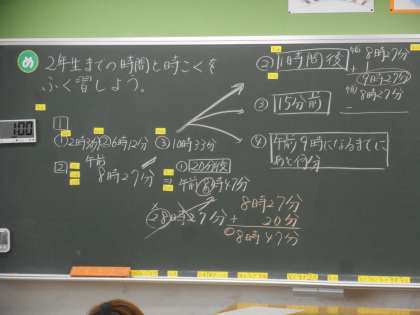 め
2年生までの時間と時こくを
ふく習しよう。
100
1
①2時3分 ②6時12分 ③10時33分
2 午前
8時27分
①20分後
⇒ 午前8時47分
28時27分
8時27分
+ 20分
8時47分
② 1時間後
午前 8時27分
+ 1
9時27分
③ 15分前
午前 8時27分
−
④ 午前9時になるまでに
あと何分